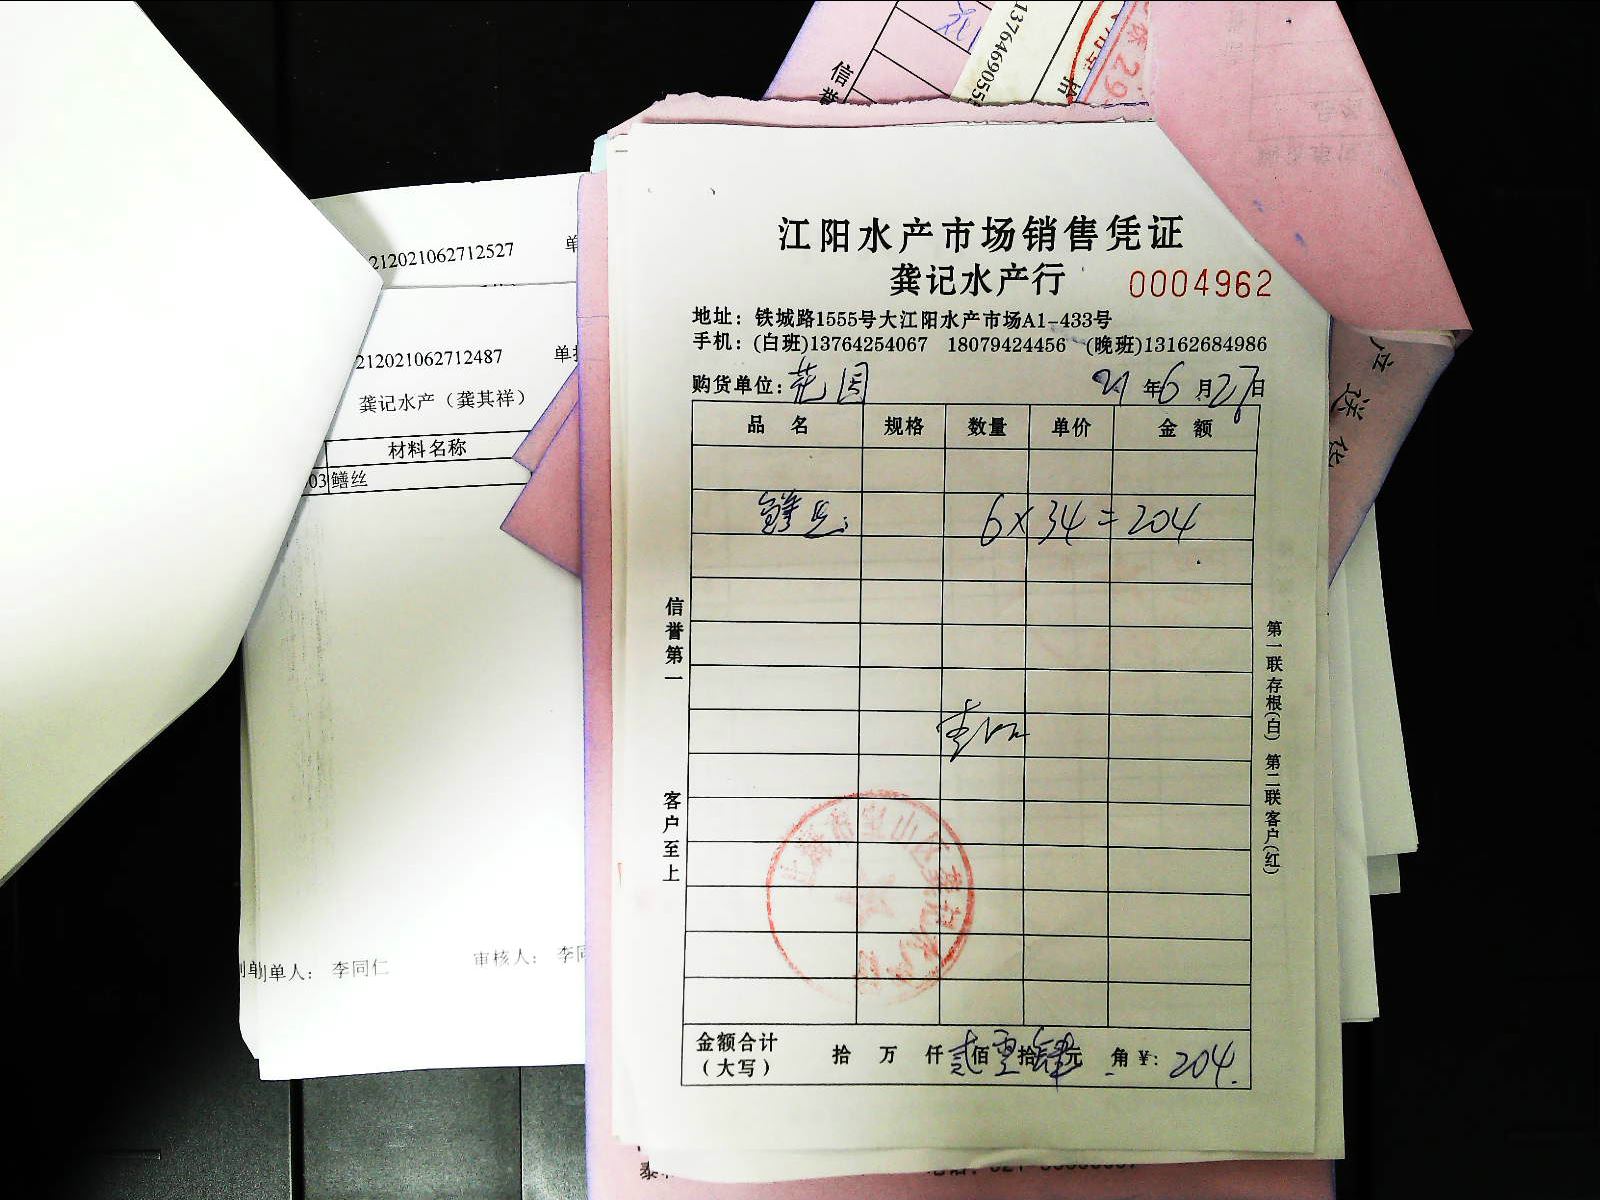 信誉
13764690555
212021062712527 单
212021062712487 单
龚记水产（龚其祥）
材料名称
03 鳝丝
制单人： 李同仁 审核人： 李同
江阳水产市场销售凭证
龚记水产行 0004962
地址：铁城路1555号大江阳水产市场A1-433号
手机：(白班)13764254067 18079424456 (晚班)13162684986
购货单位：花园 21年6月27日
品名 规格 数量 单价 金额
鳝丝 6×34=204
信誉第一
客户至上
第一联存根(白) 第二联客户(红)
金额合计（大写） 拾 万 仟 贰佰 零拾 肆元 角 ¥: 204.
送货